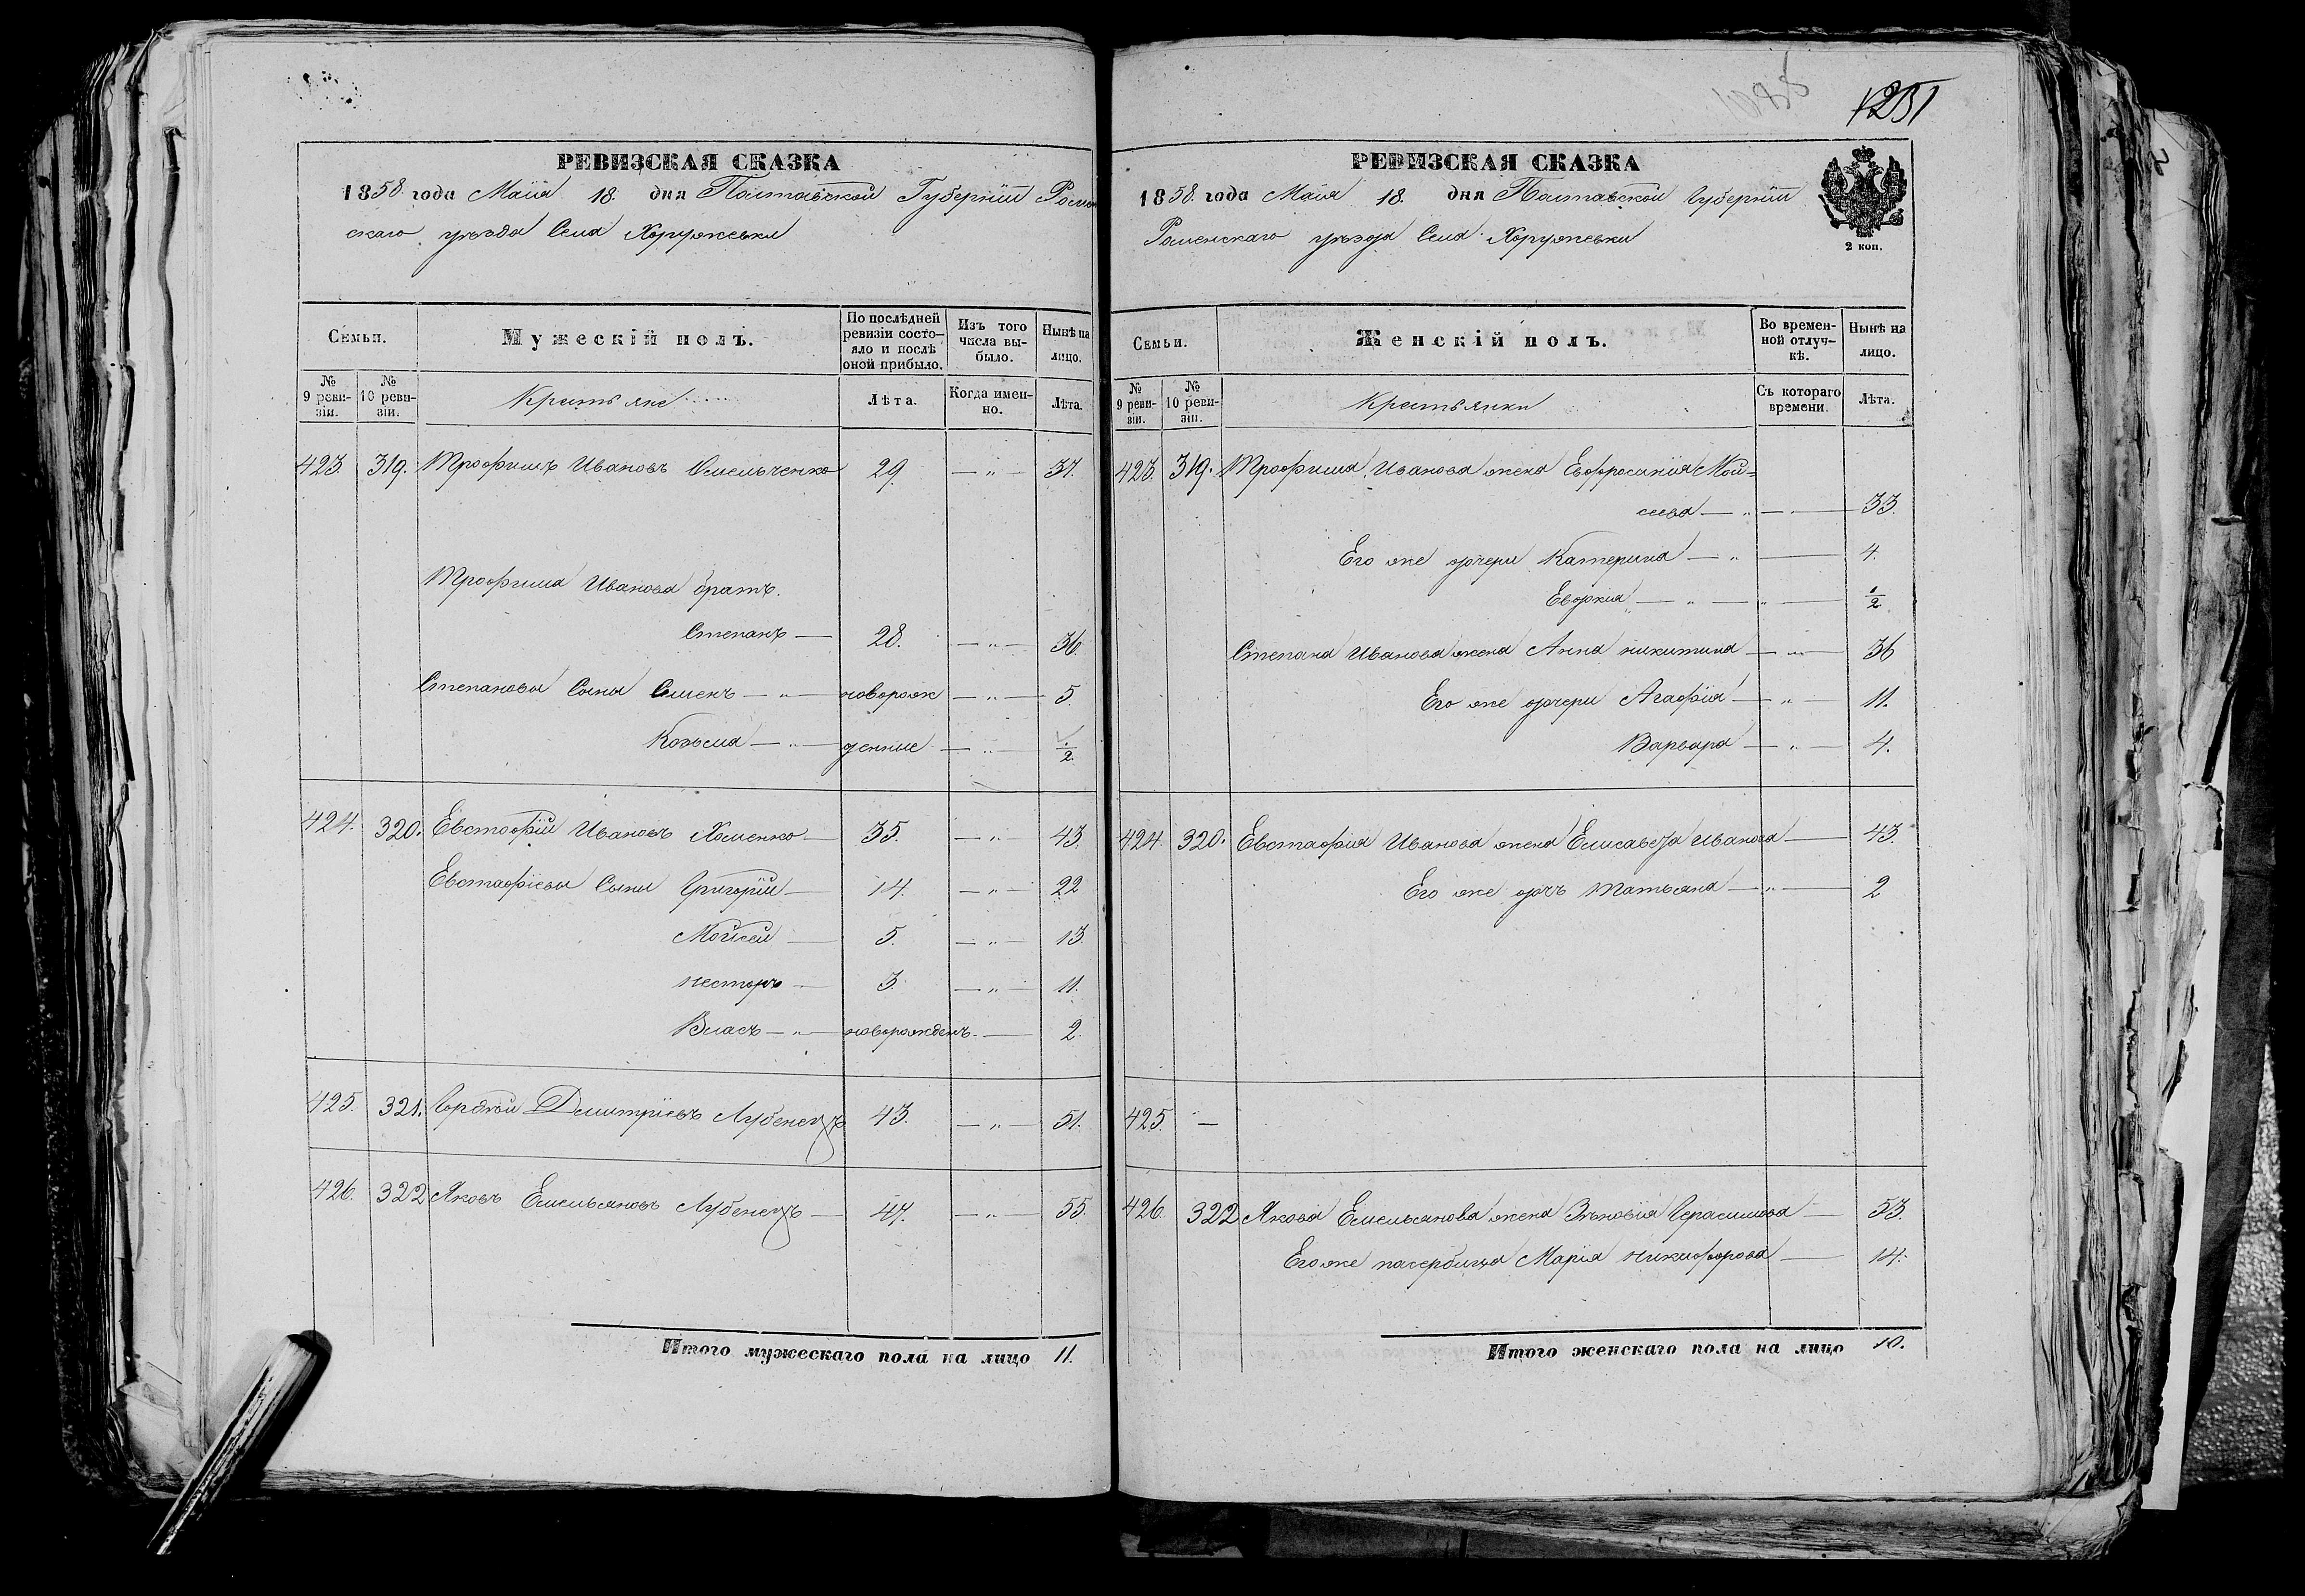 РЕВИЗСКАЯ СКАЗКА
1858 года Маія 18. дня Полтавской Губерніи Ромен
скаго уѣзда Села Хоружевки
Семьи.
Мужескій полъ.
По послѣдней ревизіи состо- яло и послѣ оной прибыло.
Изъ того числа вы- было.
Нынѣ на лицо.
№ 9 реви- зіи.
№ 10 реви- зіи.
Крестьяне
Лѣта.
Когда имен- но.
Лѣта.
423 319. Трофимъ Ивановъ Омельченко 29. — „ — 37.
Трофима Иванова братъ.
Степанъ — 28. — „ — 36.
Степановы Сыны Семенъ — „ — новорож — „ — 5.
Козьма — „ — денные — „ — 1/2.
424. 320. Евстафій Ивановъ Хоменко — 35. — „ — 43.
Евстафіевы Сыны Григорій — 14. — „ — 22
Мойсей — 5. — „ — 13.
Несторъ — 3. — „ — 11.
Власъ — „ — новорожденъ. — 2.
425. 321. Гордѣй Дмитріевъ Лубенецъ 43. — „ — 51.
426. 322 Яковъ Емельяновъ Лубенецъ — 47. — „ — 55.
Итого мужескаго пола на лицо 11.
1251
РЕВИЗСКАЯ СКАЗКА
1858. года Маія 18. дня Полтавской Губерніи
Роменскаго уѣзда Села Хоружевки
2 коп.
Семьи.
Женскій полъ.
Во времен- ной отлуч- кѣ.
Нынѣ на лицо.
№ 9 реви- зіи.
№ 10 реви- зіи.
Крестьянки
Съ котораго времени.
Лѣта.
423. 319. Трофима Иванова жена Евфросинія Мой=
сеева — „ — 33.
Его же дочери Катерина — „ — 4.
Евдокія — „ — „ — 1/2
Степана Иванова жена Анна Никитина — „ — 36
Его же дочери Агафія — „ — 11.
Варвара — „ — 4.
424. 320. Евстафія Иванова жена Елисавета Иванова — 43.
Его же дочь Татьяна — „ — 2
425. —
426. 322 Якова Емельянова жена Зѣновія Герасимова — 53.
Его же пасербица Марія Никифорова — 14.
Итого женскаго пола на лицо 10.